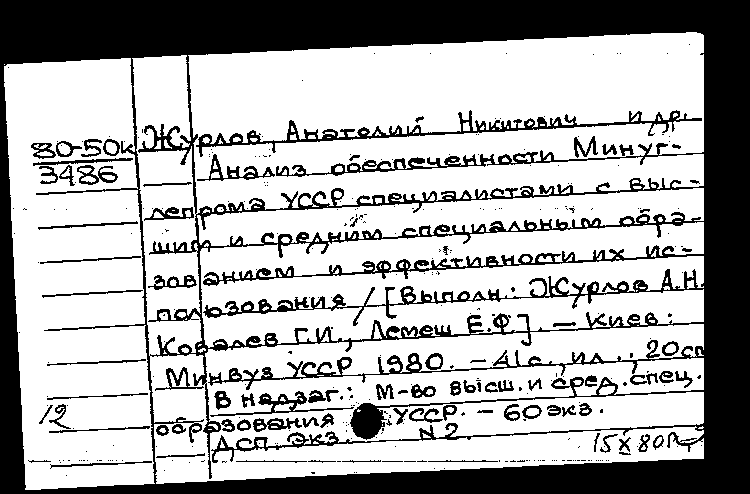 Журлов, Анатолий Никитович и др.
80-50к
3486
Анализ обеспеченности Минуг-
лепрома УССР специалистами с выс-
шим и средним специальным обра-
зованием и эффективности их ис-
пользования / [Выполн.: Журлов А.Н.
Ковалев Г.И., Лемеш Е.Ф.]. — Киев:
Минвуз УССР, 1980. — 41с., ил.; 20см
В надзаг.: М-во высш. и сред. спец.
образования УССР. — 60 экз.
ДСП. Экз. N 2.
12
15 X 80